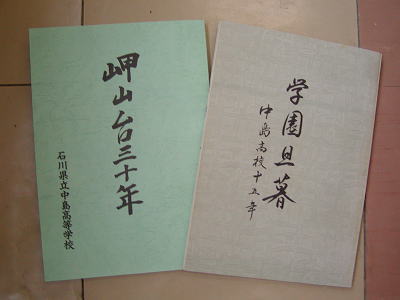 岬山台三十年
石川県立中島高等学校
学園旦暮
中島高校十五年